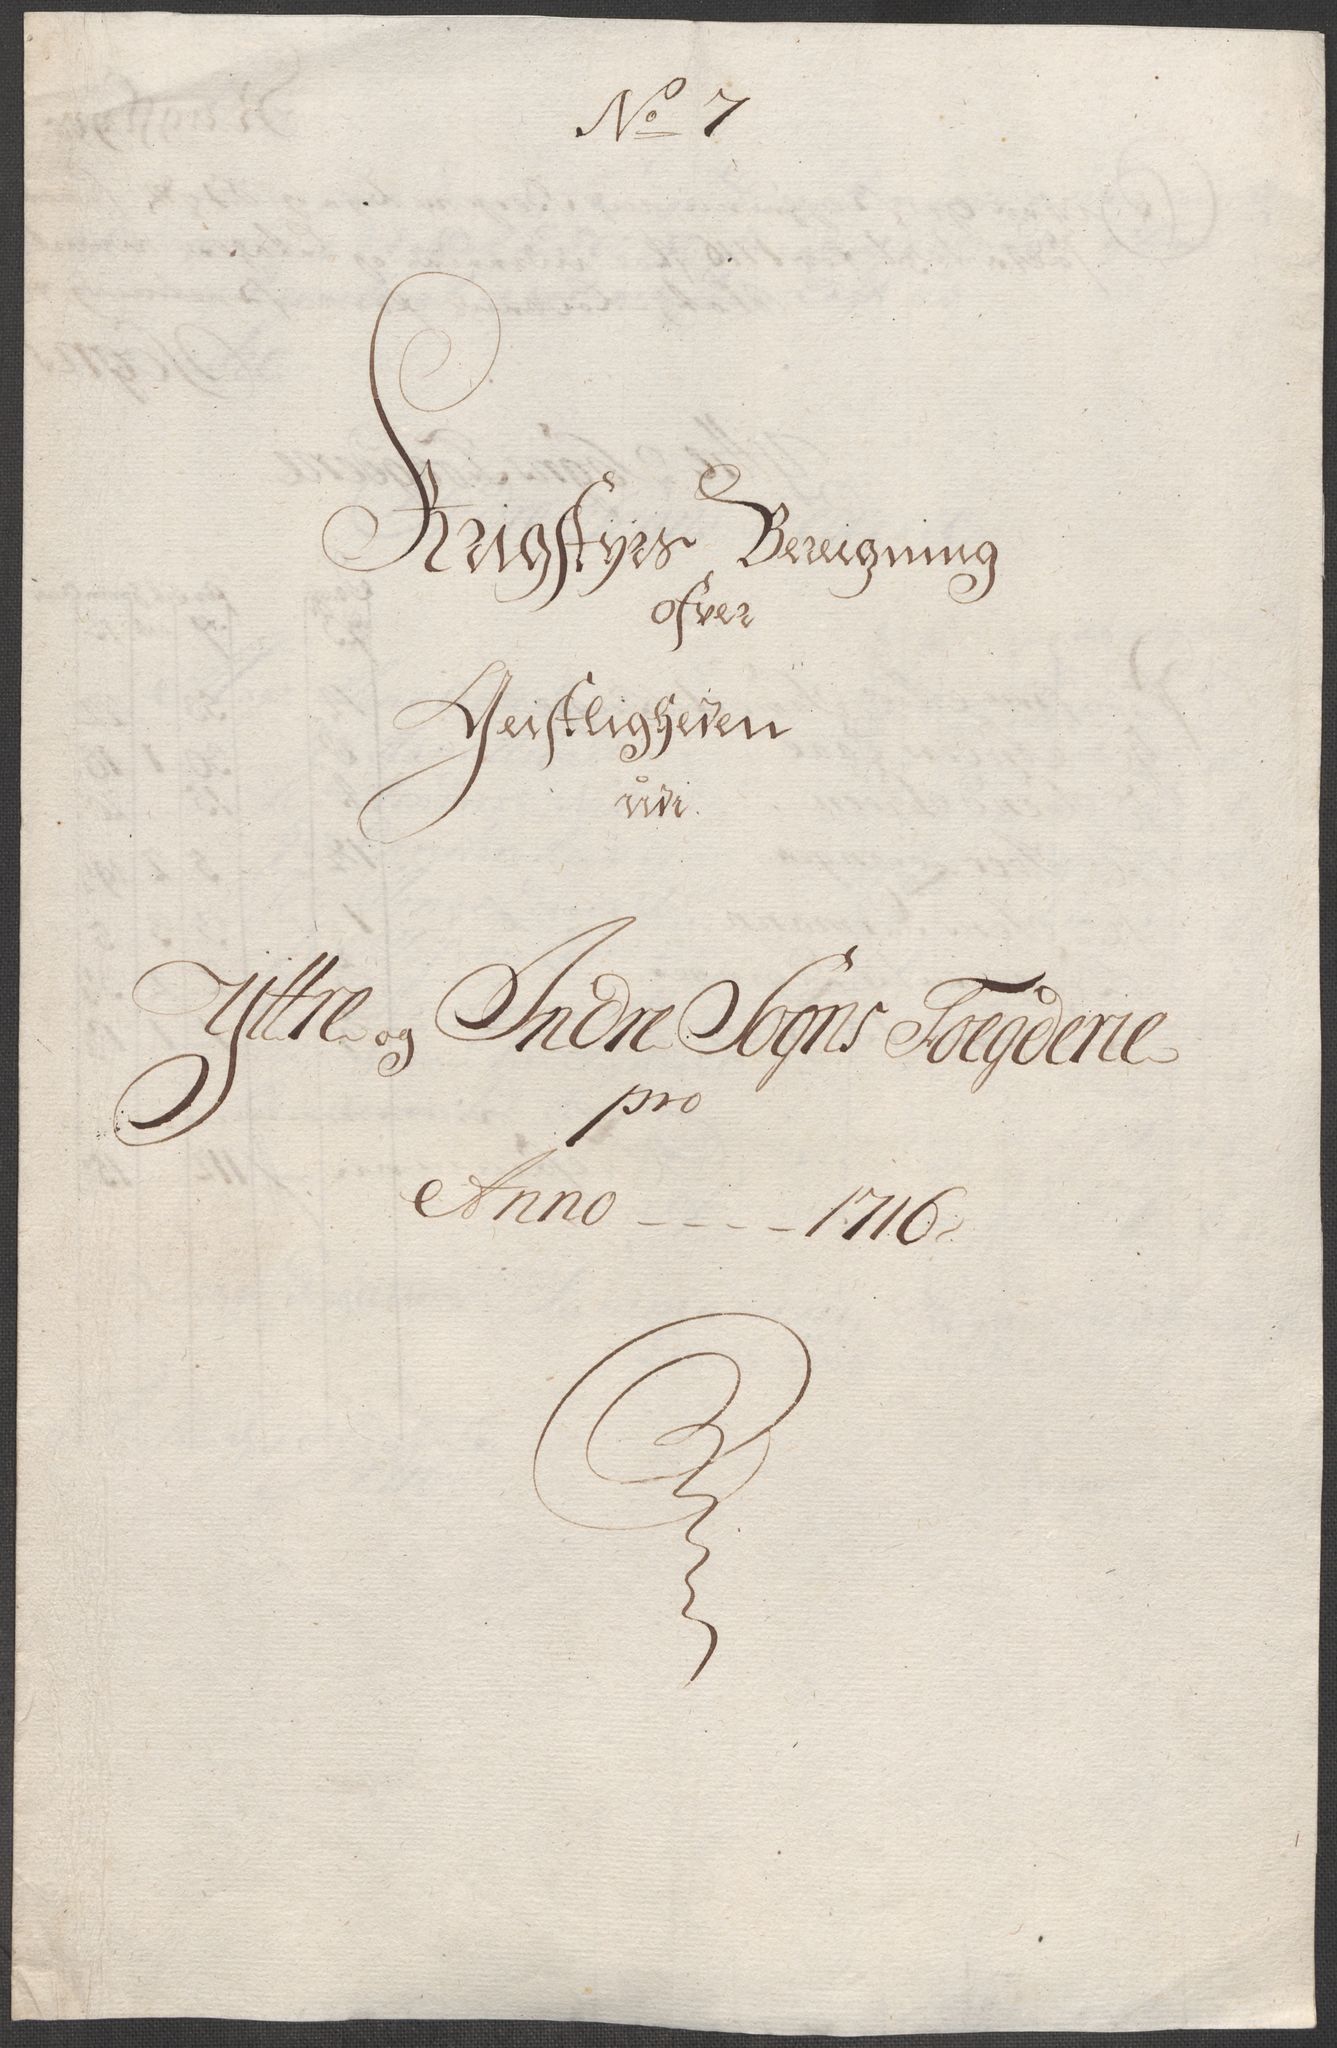 No 7
Krigstyrs Bereigning
ofver
Geistligheden
udi
Yttre og Indre Sogns Foegderie
pro
Anno - - - - 1716